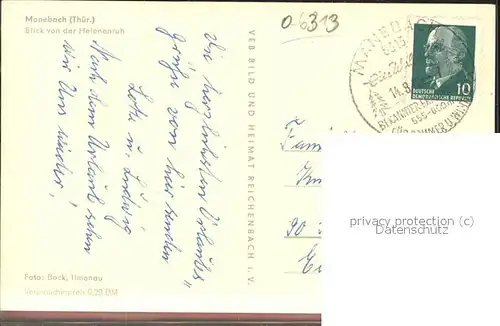 Manebach (Thür.)
Blick von der Helenenruh
0-6313
Die herzlichsten Urlaubs-
grüße von hier senden
Lotte u. Ludwig
Nach dem Urlaub sehen
wir uns wieder!
VEB BILD UND HEIMAT REICHENBACH i. V.
MANEBACH
14.9
10
DEUTSCHE
DEMOKRATISCHE REPUBLIK
Fam
90
privacy protection (c)
Datenschutz
Foto: Bock, Ilmenau
Verbraucherpreis 0,20 DM